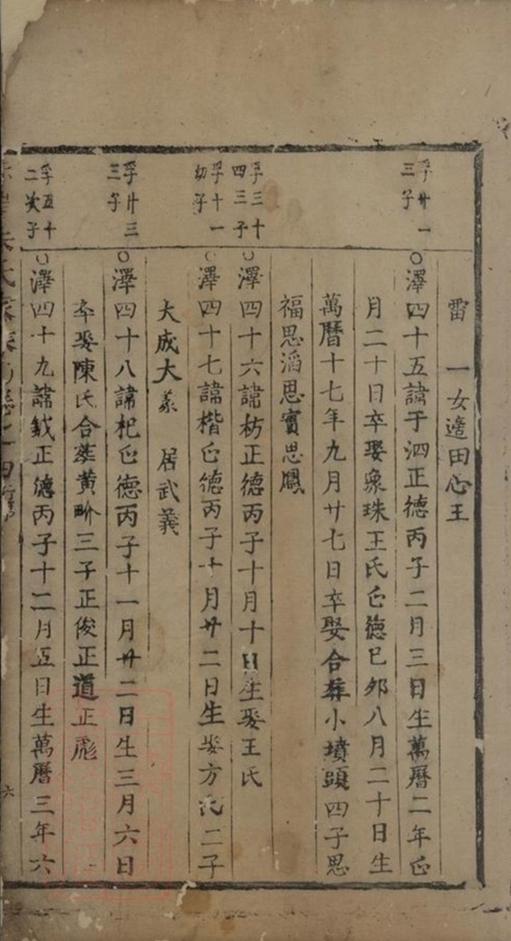 雷　一女適田心王
孚廿一三子
○澤四十五諱于泗正德丙子二月三日生萬曆二年正
月二十日卒娶衆珠王氏正德己卯八月二十日生
萬曆十七年九月廿七日卒娶合葬小墳頭四子思
福思滔思賓思鳳
孚三十四三子
○澤四十六諱枋正德丙子十月十日生娶王氏
孚十一幼子
○澤四十七諱楷正德丙子十月廿二日生娶方氏二子
大成大義　居武義
孚卅三三子
○澤四十八諱杞正德丙子十一月廿二日生三月六日
卒娶陳氏合葬黃畈三子正俊正道正彪
孚五十二次子
○澤四十九諱鉞正德丙子十二月五日生萬曆三年六
氏
六